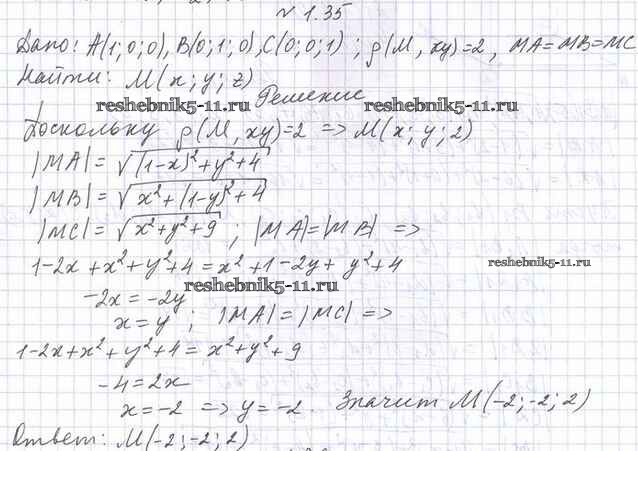 № 1.35
Дано: A(1; 0; 0), B(0; 1; 0), C(0; 0; 1) ; ρ(M, xy)=2, MA=MB=MC
Найти: M(x; y; z)
Решение
reshebnik5-11.ru reshebnik5-11.ru
Поскольку ρ(M, xy)=2 => M(x; y; 2)
|MA| = √((1-x)²+y²+4)
|MB| = √(x²+(1-y)²+4)
|MC| = √(x²+y²+9) ; |MA|=|MB| =>
1-2x+x²+y²+4 = x²+1-2y+y²+4
reshebnik5-11.ru
reshebnik5-11.ru
-2x = -2y
x = y ; |MA| = |MC| =>
1-2x+x²+y²+4 = x²+y²+9
-4 = 2x
x = -2 => y = -2. Значит M(-2; -2; 2)
Ответ: M(-2; -2; 2)